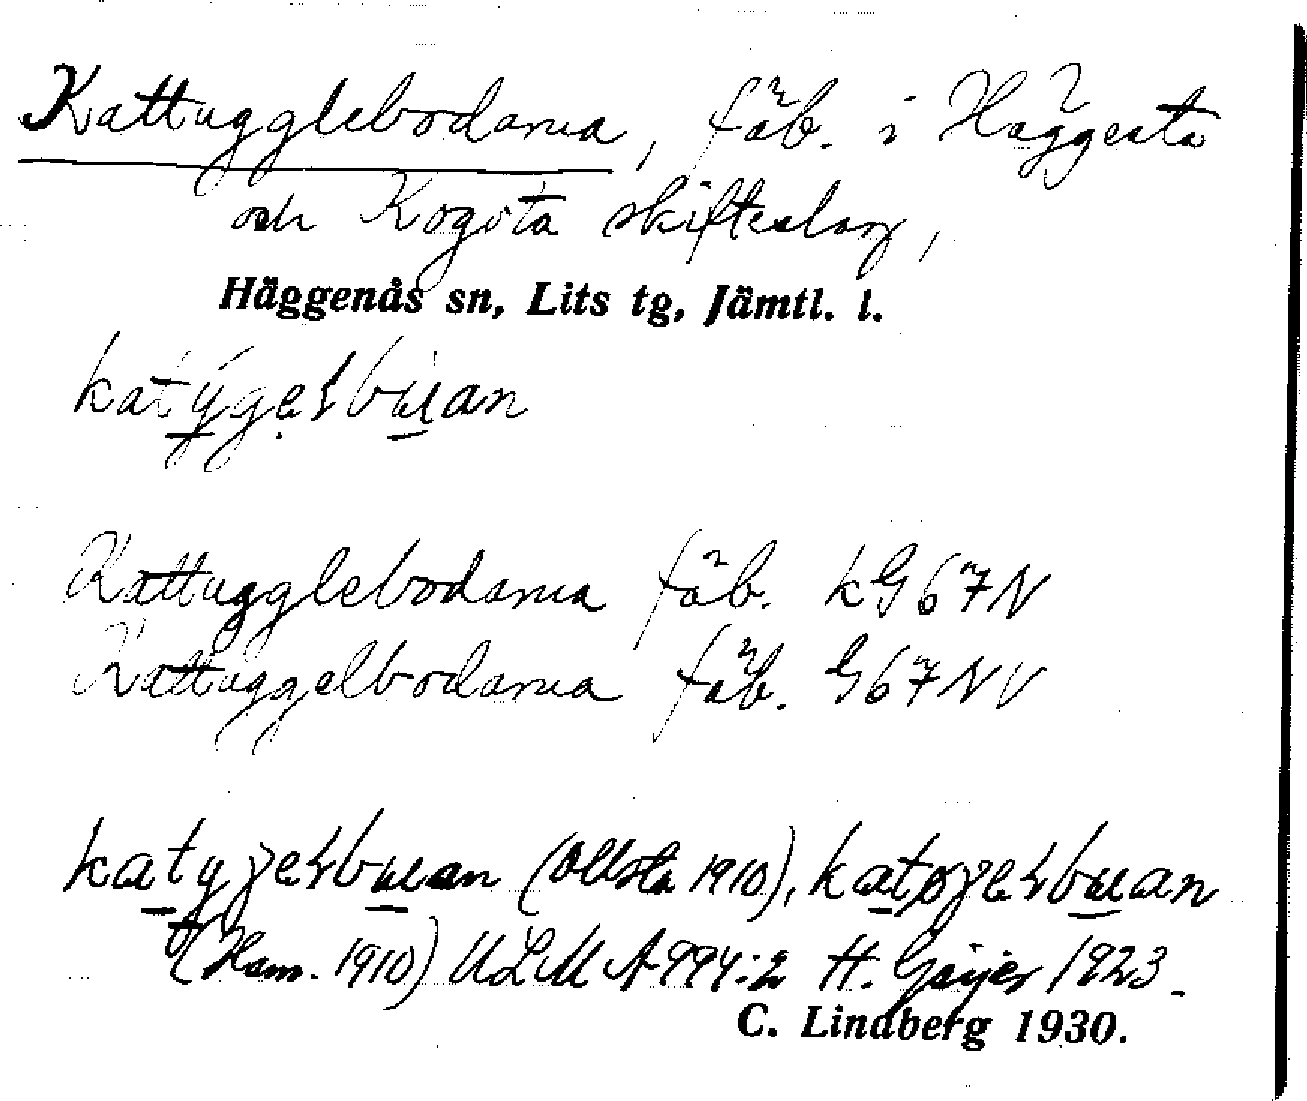 Kattugglebodarna, fäb. i Häggesta
och Kogsta skifteslag,
Häggenås sn, Lits tg, Jämtl. l.
katygelbuan
Kattugglebodarna fäb. kG67N
Kattuggelbodarna fäb. G67NV
katyʒelbuan (Ollsta 1910), katøʒelbuan
(Ham. 1910) ULMA 994:2 H. Geijer 1923.
C. Lindberg 1930.